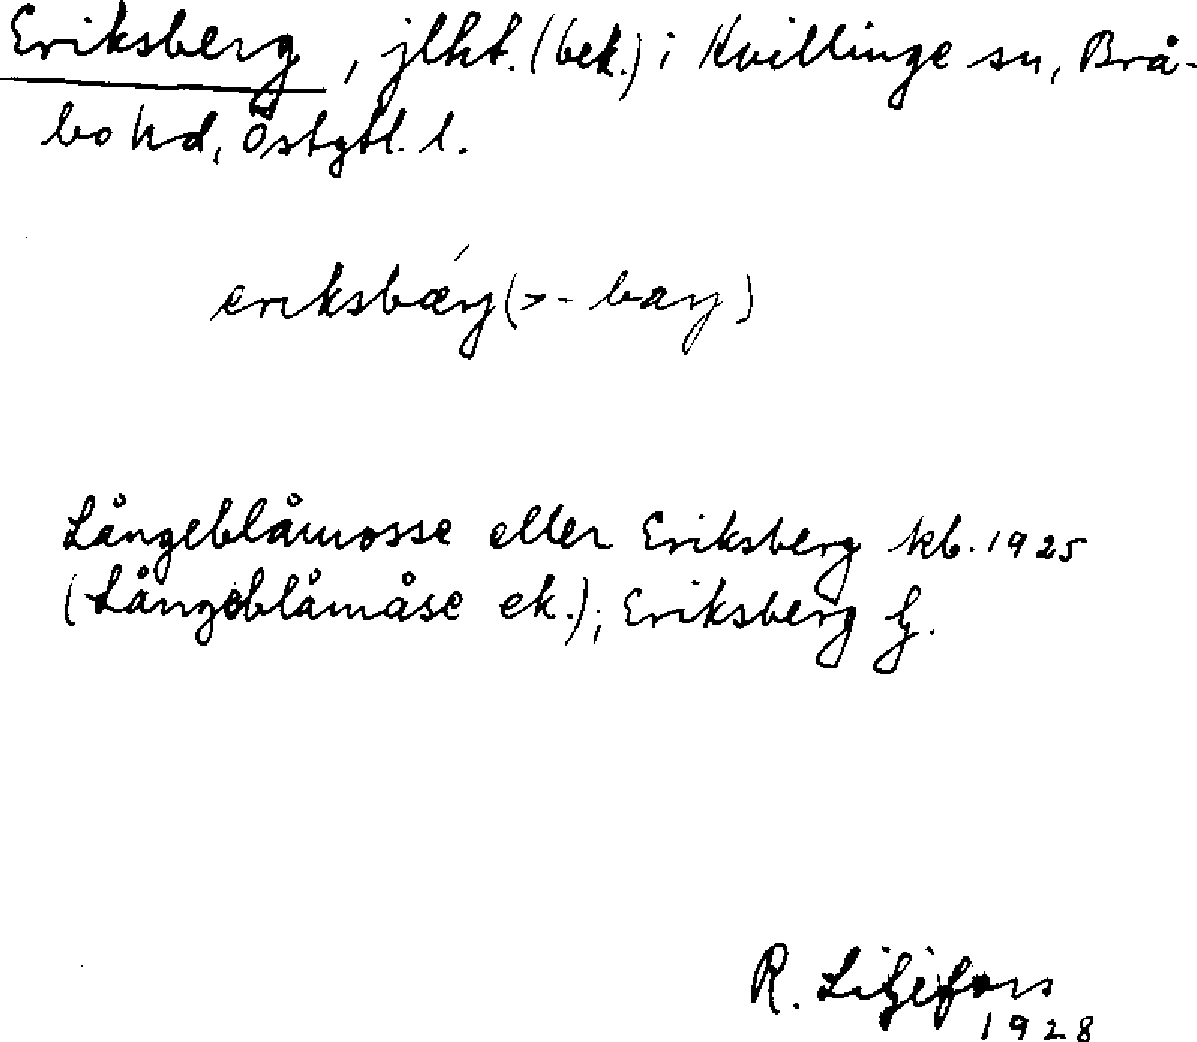 Eriksberg, jlht. (bek.) i Kvillinge sn, Brå-
bo hd, Östgtl. l.
eriksbǽrj (>- bærj)
Långeblåmosse eller Eriksberg kb. 1925
(Långeblåmåse ek.); Eriksberg G.
R. Liljefors
1928